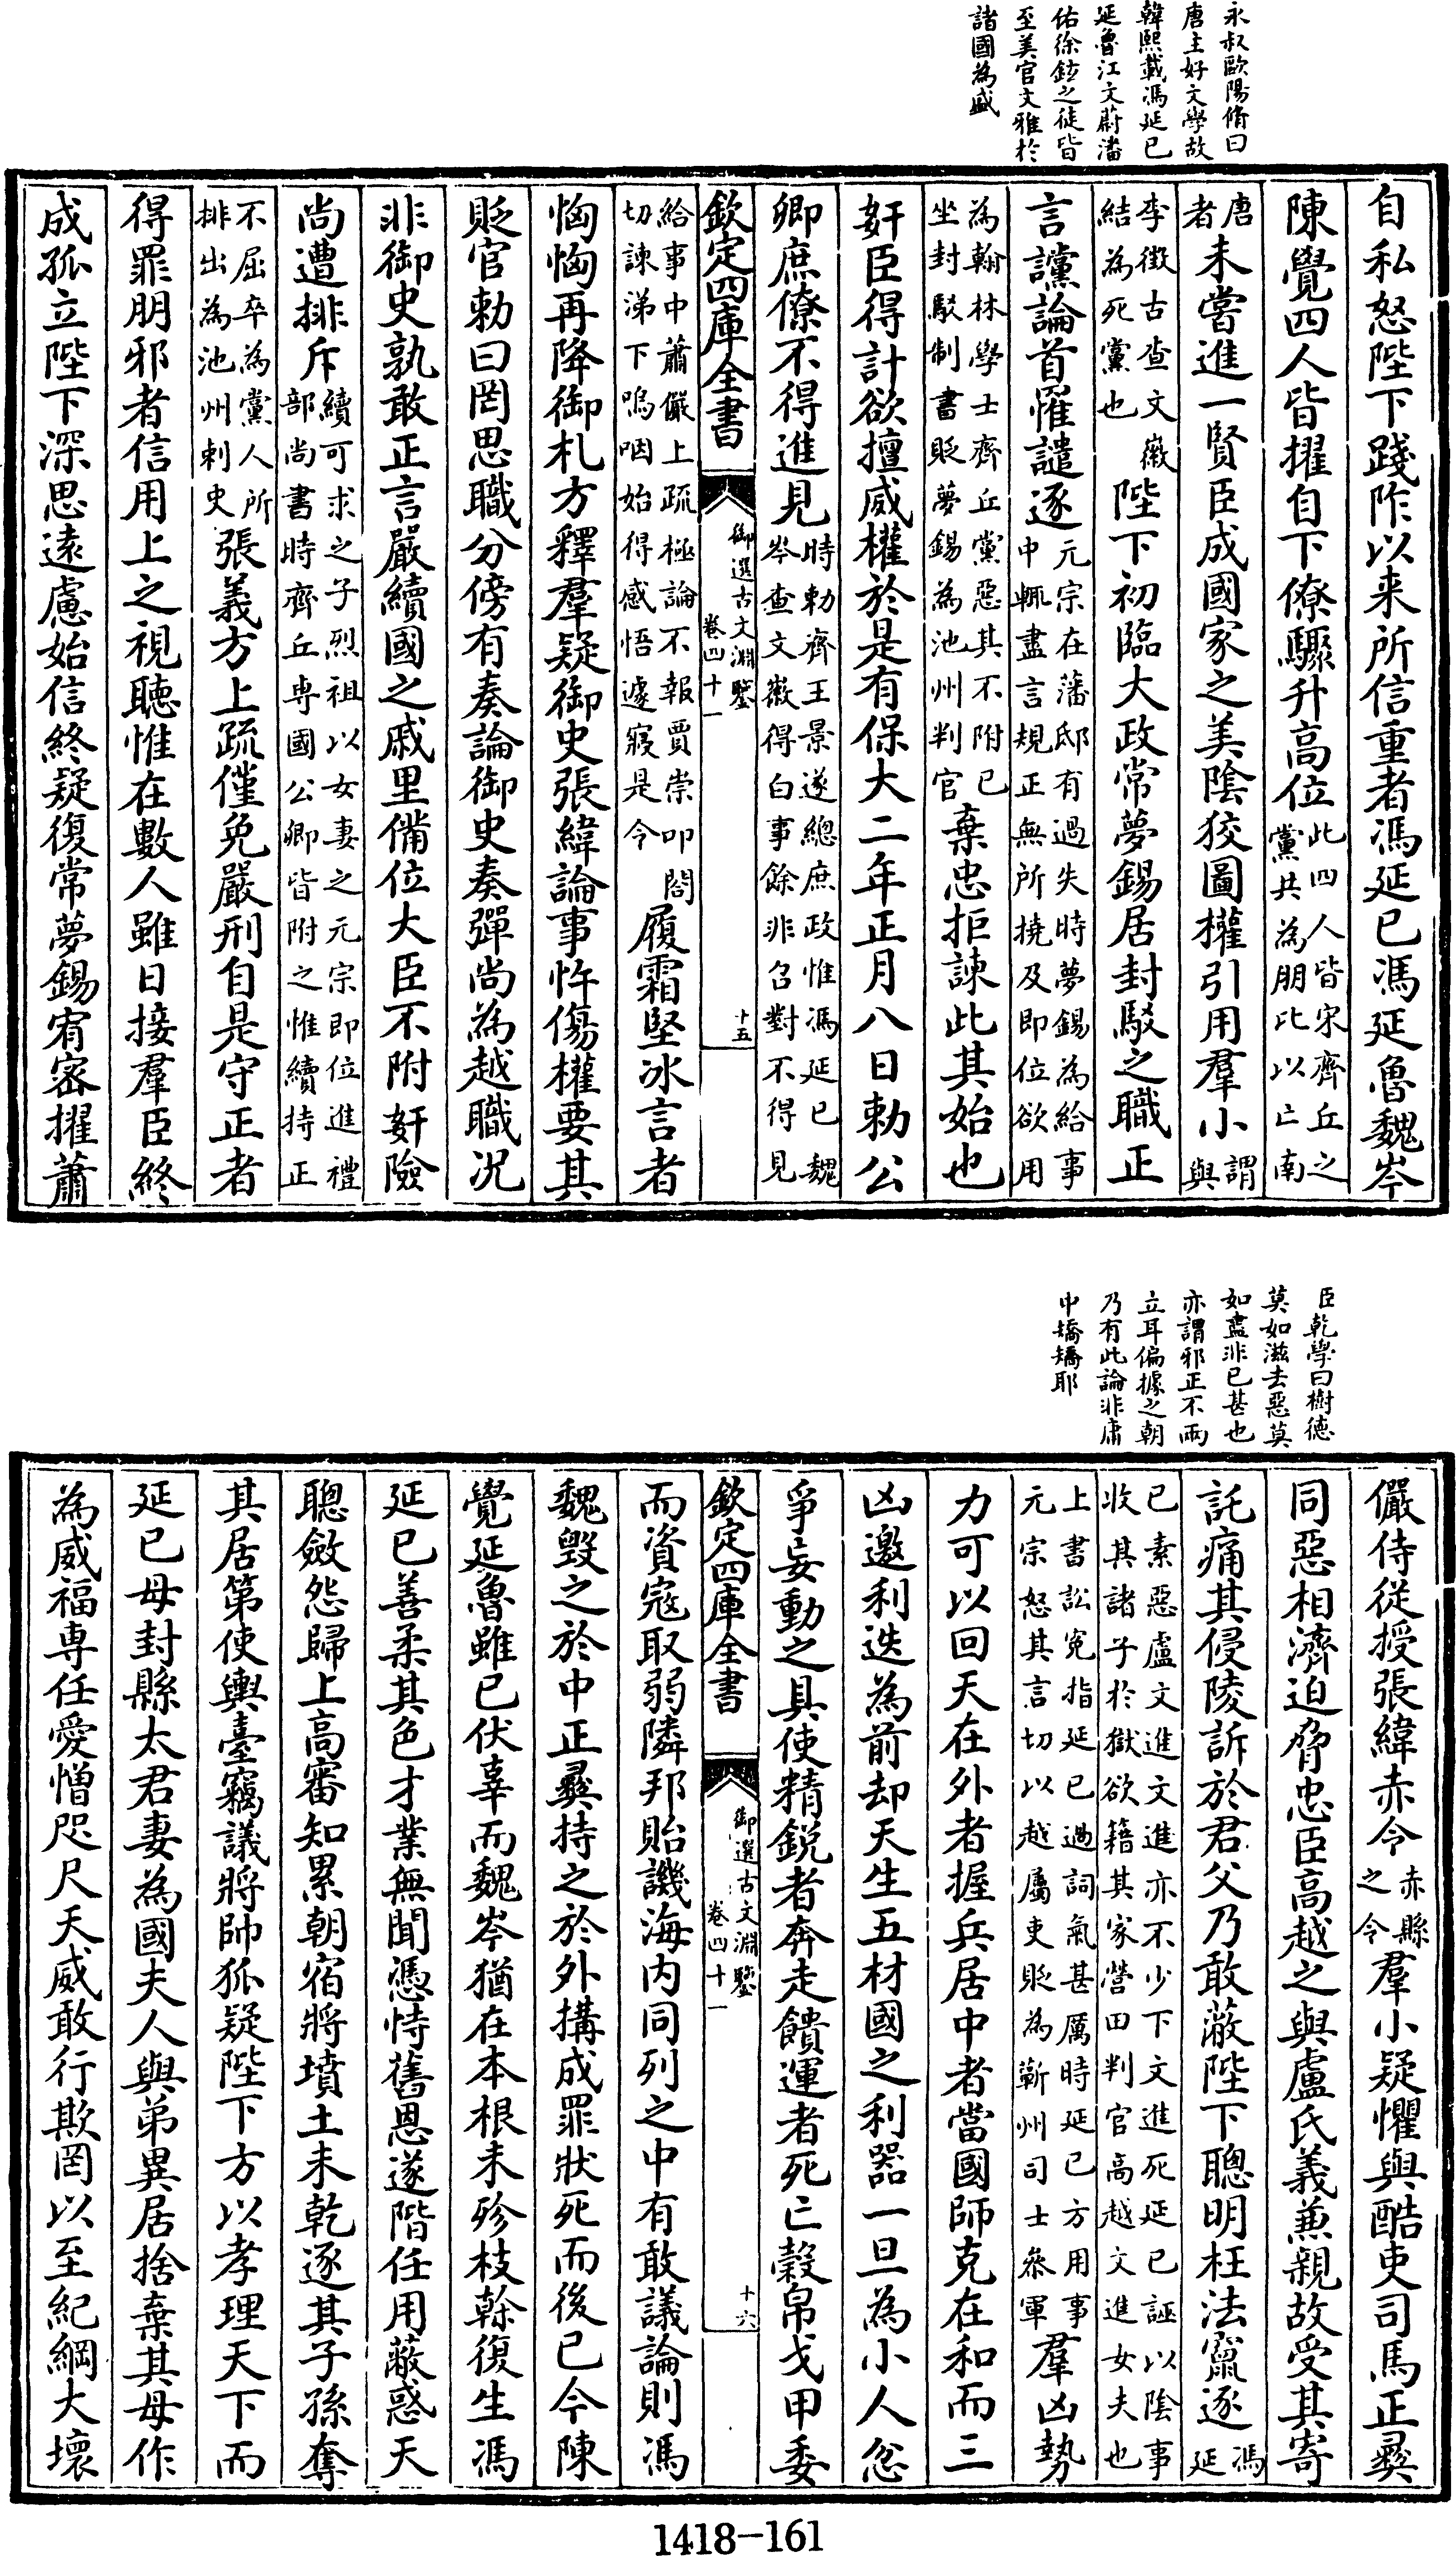 永叔歐陽脩曰
唐主好文學故
韓熙載馮延已
延魯江文蔚潘
佑徐鉉之徒皆
至美官文雅於
諸國為盛
自私怒陛下踐阼以来所信重者馮延已馮延魯魏岑
陳覺四人皆擢自下僚驟升高位此四人皆宋齊丘之黨共為朋比以亡南
唐者未嘗進一賢臣成國家之美陰狡圖權引用羣小謂與
李徵古查文徽結為死黨也陛下初臨大政常夢錫居封駁之職正
言讜論首罹譴逐元宗在藩邸有過失時夢錫為給事中輒盡言規正無所撓及即位欲用
為翰林學士齊丘黨惡其不附已坐封駁制書貶夢錫為池州判官棄忠拒諫此其始也
奸臣得計欲擅威權於是有保大二年正月八日勅公
卿庶僚不得進見時勅齊王景遂總庶政惟馮延已魏岑查文徽得白事餘非召對不得見
欽定四庫全書
御選古文淵鑒
卷四十一
十五
給事中蕭儼上疏極論不報賈崇叩閤切諫涕下嗚咽始得感悟遽寢是令履霜堅冰言者
恟恟再降御札方釋羣疑御史張緯論事忤傷權要其
貶官勅曰罔思職分傍有奏論御史奏彈尚為越職况
非御史孰敢正言嚴續國之戚里備位大臣不附奸險
尚遭排斥續可求之子烈祖以女妻之元宗即位進禮部尚書時齊丘専國公卿皆附之惟續持正
不屈卒為黨人所排出為池州刺史張義方上疏僅免嚴刑自是守正者
得罪朋邪者信用上之視聽惟在數人雖日接羣臣終
成孤立陛下深思遠慮始信終疑復常夢錫宥密擢蕭
臣乾學曰樹德
莫如滋去惡莫
如盡非已甚也
亦謂邪正不兩
立耳偏據之朝
乃有此論非庸
中矯矯耶
儼侍従授張緯赤令赤縣之令羣小疑懼與酷吏司馬正彛
同惡相濟迫脅忠臣高越之與盧氏義兼親故受其寄
託痛其侵陵訴於君父乃敢蔽陛下聰明枉法竄逐馮延
已素惡盧文進文進亦不少下文進死延已誣以陰事收其諸子於獄欲籍其家營田判官高越文進女夫也
上書訟寃指延已過詞氣甚厲時延已方用事元宗怒其言切以越屬吏貶為蘄州司士叅軍羣凶勢
力可以回天在外者握兵居中者當國師克在和而三
凶邀利迭為前却天生五材國之利器一旦為小人忿
爭妄動之具使精銳者奔走饋運者死亡榖帛戈甲委
欽定四庫全書
御選古文淵鑒
卷四十一
十六
而資寇取弱隣邦貽譏海内同列之中有敢議論則馮
魏毀之於中正彛持之於外搆成罪狀死而後已今陳
覺延魯雖已伏辜而魏岑猶在本根未殄枝榦復生馮
延已善柔其色才業無聞憑恃舊恩遂階任用蔽惑天
聰斂怨歸上高審知累朝宿將墳土未乾逐其子孫奪
其居第使輿臺竊議將帥狐疑陛下方以孝理天下而
延已母封縣太君妻為國夫人與弟異居捨棄其母作
為威福専任愛憎咫尺天威敢行欺罔以至紀綱大壞
1418-161